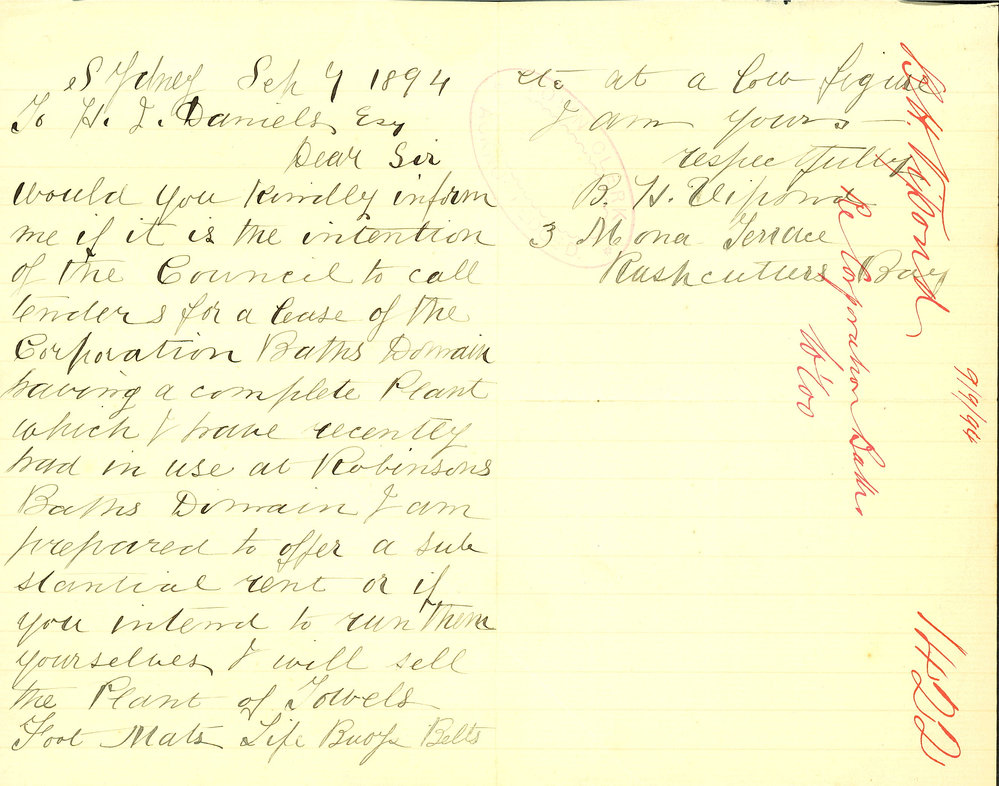 Sydney Sep 7 1894
To H. J. Daniels Esq
Dear Sir
Would you kindly inform
me if it is the intention
of the Council to call
tenders for a lease of the
Corporation Baths Domain
having a complete Plant
which I have recently
had in use at Robinsons
Baths Domain I am
prepared to offer a sub
stantial rent or if
you intend to run them
yourselves I will sell
the Plant of Towels
Foot Mats Life Buoys Belts
etc at a low figure
I am yours
respectfully
B. H. Vipond
3 Mona Terrace
Rushcutters Bay
B. H. Vipond
re Corporation Baths
W'loo
9/9/94
HJD
CLERK